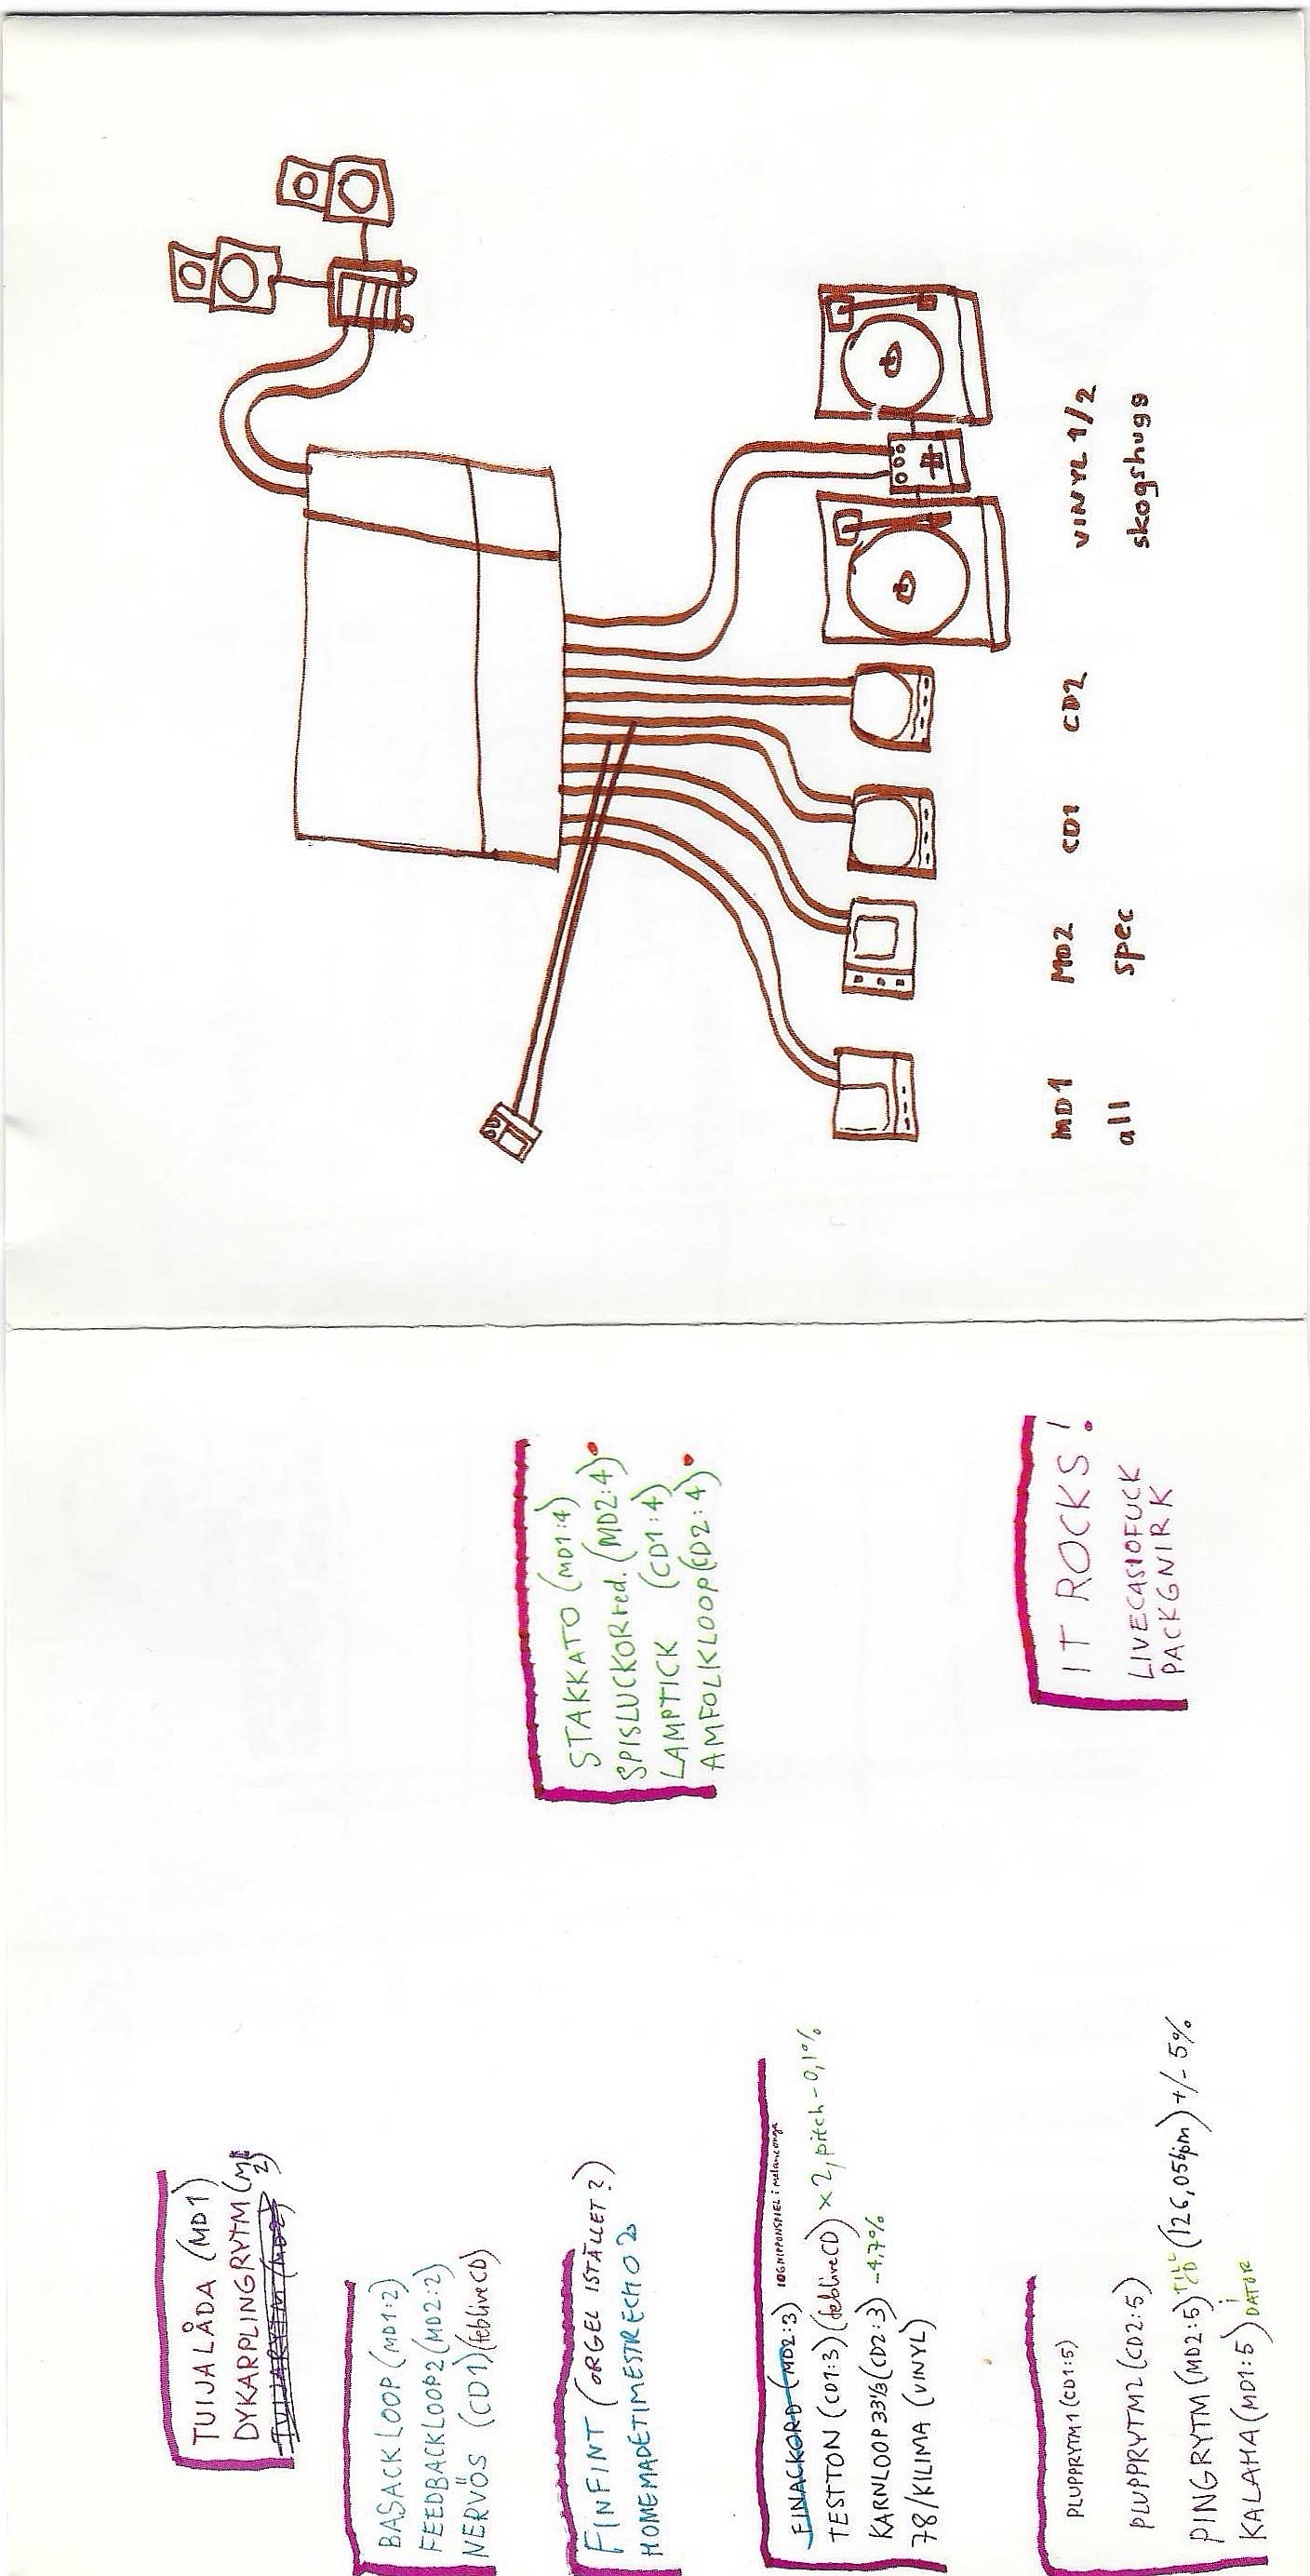 TUIJALÅDA (MD1)
DYKARPLINGRYTM (MD2)
TUIJARYTM (MD2)
BASACK LOOP (MD1:2)
FEEDBACKLOOP2 (MD2:2)
NERVÖS (CD1)(febliveCD)
FINFINT (ORGEL ISTÄLLET?)
HOMEMADETIMESTRECHO2
FINACKORD (MD2:3)
TESTTON (CD1:3)(febliveCD) x2, pitch -0,1%
KARNLOOP33⅓ (CD2:3) -4,7%
78/KILIMA (VINYL)
PLUPPRYTM1 (CD1:5)
PLUPPRYTM2 (CD2:5)
PINGRYTM (MD2:5) TILL CD (126,05bpm) +/- 5%
KALAHA (MD1:5) i DATOR
STAKKATO (MD1:4)
SPISLUCKORred. (MD2:4)
LAMPTICK (CD1:4)
AMFOLKLOOP (CD2:4)
IT ROCKS!
LIVECASIOFUCK
PACKGNIRK
MD1 MD2 CD1 CD2 VINYL 1/2
all spec skogshugg